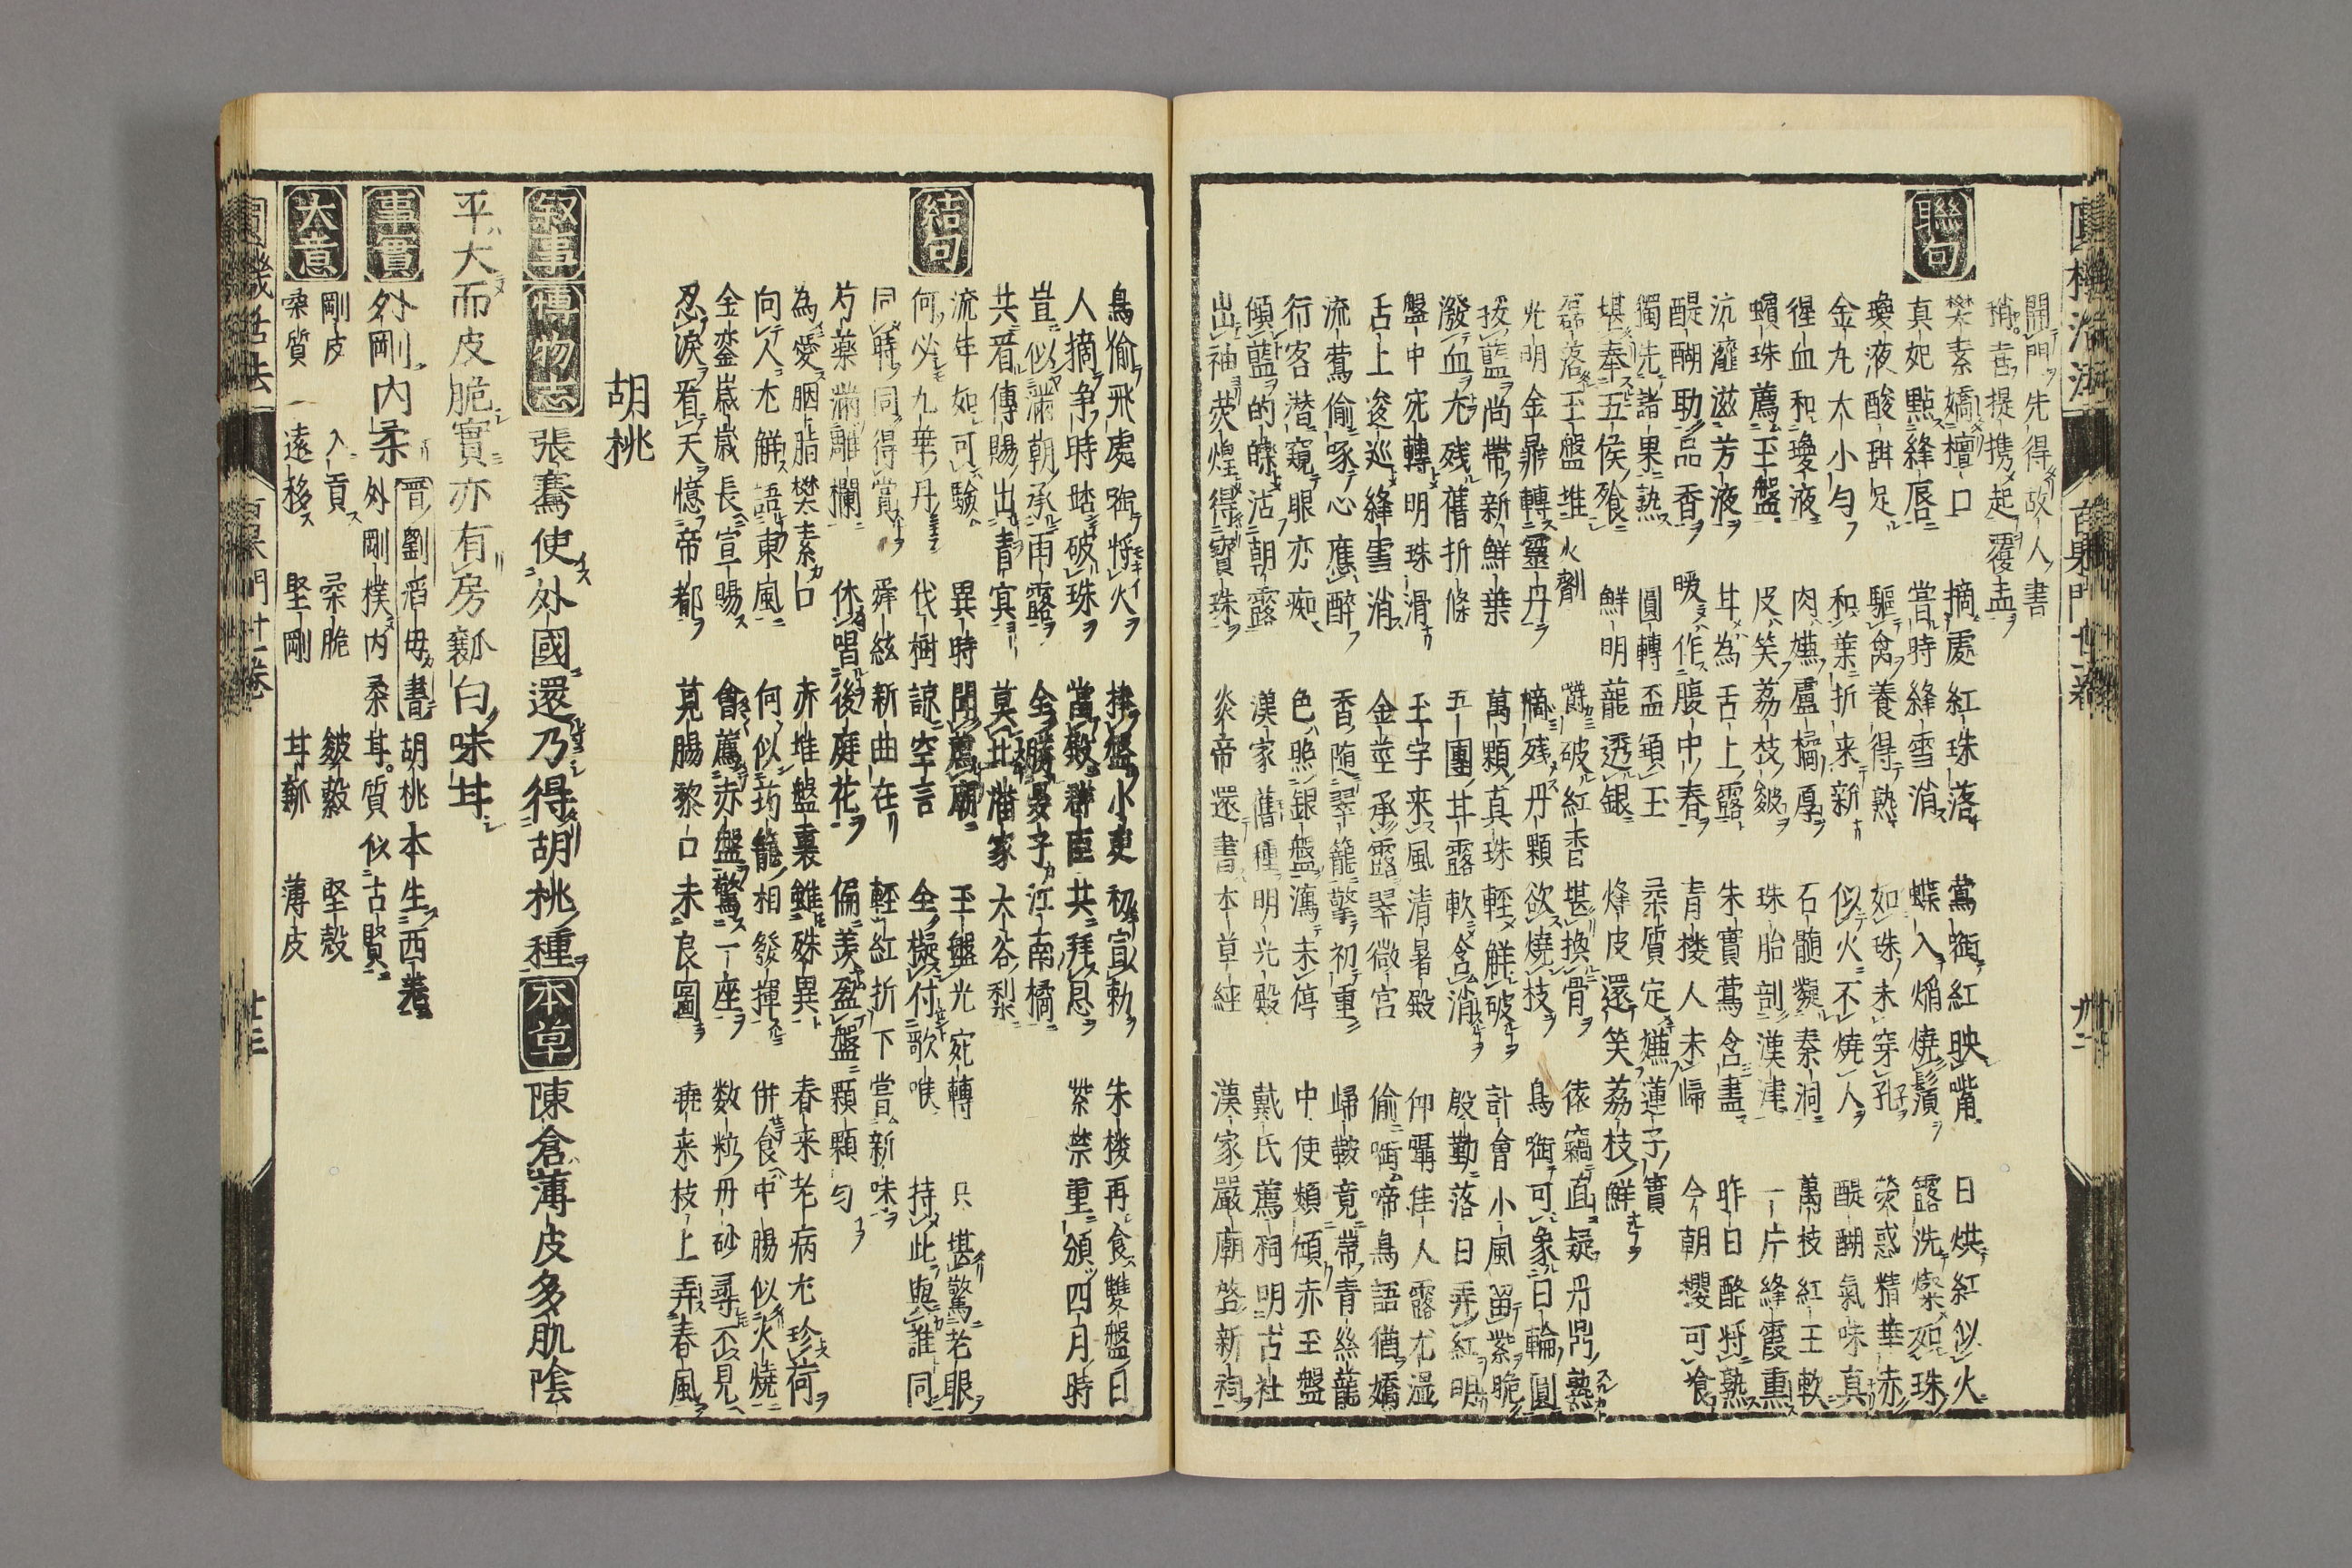 開門先得故人書
稍喜提携起覆盂
聯句
樊素嬌檀口 摘處紅珠落 鶯銜紅映嘴 日烘紅似火
真妃點絳唇 嘗時絳雪消 蝶入焔燒鬚 露洗燦如珠
瓊液酸甜足 驅禽養得熟 如珠未穿孔 熒惑精華赤
金丸大小勻 和葉折来新 似火不燒人 醍醐氣味真
猩血和瓊液 肉嫌盧橘厚 石髓凝秦洞 萬枝紅玉軟
蠙珠薦玉盤 皮笑荔枝皴 珠胎剖漢津 一片絳霞熏
沆瀣滋芳液 甘為舌上露 朱實鶯含盡 昨日酪将熟
醍醐助品香 暖作腹中春 青楼人未歸 今朝櫻可飡
獨先諸果熟 圓轉盃顆玉 柔質定嫌蓮子實
堪奉五侯飱 鮮明蘢透銀 烽皮還笑荔枝鮮
磊落玉盤堆火劑 嚼破紅香堪換骨 依竊直疑丹鼎熟
光明金鼎轉靈丹 摘残丹顆欲燒枝 鳥銜可象日輪圓
拔藍尚帶新鮮葉 萬顆真珠輕鮮破 計會小風留紫脆
潑血尤残舊折條 五團甘露軟含消 殷勤落日弄紅明
盤中宛轉明珠滑 玉字来風清暑殿 仰聶佳人露尤湿
舌上逡巡絳雪消 金莖承露翠微宮 偷啣啼鳥語猶嬌
流鶯偷啄心應醉 香随翠籠擎初重 歸鞍竟帶青絲蘢
行客潜窺眼亦痴 色照銀盤瀉未停 中使頻傾赤玉盤
傾藍的皪沾朝露 漢家舊種明光殿 戴氏薦祠明古社
出袖荧煌得寳珠 炎帝還書本草經 漢家嚴廟啓新祠
鳥偷飛處啣将火 捧盤小吏初宣勅 朱楼再食雙盤日
人摘争時蹈破珠 當殿群臣共拜恩 紫禁重頒四月時
豈似滿朝承雨露 全勝晏子江南橘
共看傳賜出青冥 莫比潘家大谷梨
結句
流年如可驗 異時聞薦廟 玉盤光宛轉 只堪驚老眼
何必九華丹 伐樹諒空言 全擬付歌喉 持此與誰同
同時同得賞 舜絃新曲在 輕紅折下嘗新味
芍藥滿雕欄 休唱後庭花 偏羨盈盤顆顆勻
為愛胭脂樊素口 赤堆盤裏雖殊異 春来老病尤珍荷
向人尤觧語東風 何似筠籠相發揮 併食中腸似火燒
金鑾歲歲長宣賜 會薦赤盤驚一座 数粒丹砂尋不見
忍淚看天憶帝都 莧腸黎口未良圖 堯来枝上弄春風
胡桃
叙事 博物志 張騫使外國還乃得胡桃種 本草 陳倉薄皮多肌陰
平大而皮脆實亦有房瓤白味甘
事實 外剛内柔 晋劉滔母書 胡桃本生西羌
外剛樸内柔甘質似古賢
大意 剛皮 入貢 柔脆 皴縠 堅殼
柔質 遠移 堅剛 甘新 薄皮